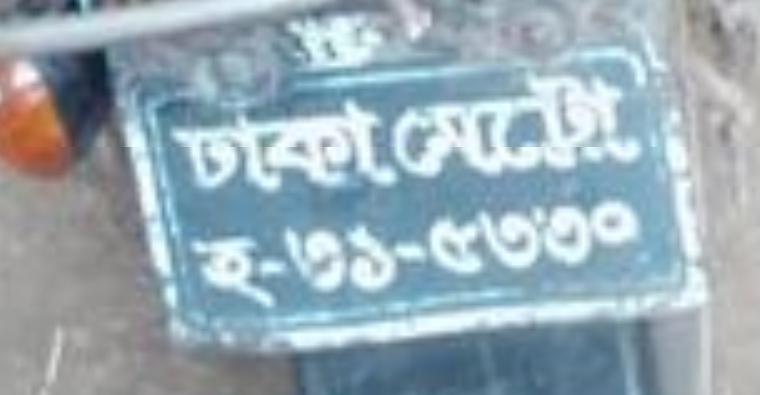 ঢাকা মেট্রো
হ-৩১-৫৩৩০